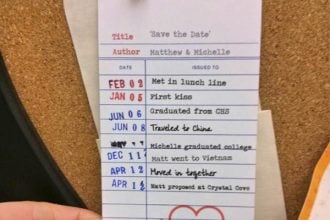 Title 'Save the Date'
Author Matthew & Michelle
DATE ISSUED TO
FEB 02 Met in lunch line
JAN 05 First kiss
JUN 06 Graduated from CHS
JUN 08 Traveled to China
Michelle graduated college
DEC 11 Matt went to Vietnam
APR 12 Moved in together
APR 12 Matt proposed at Crystal Cove